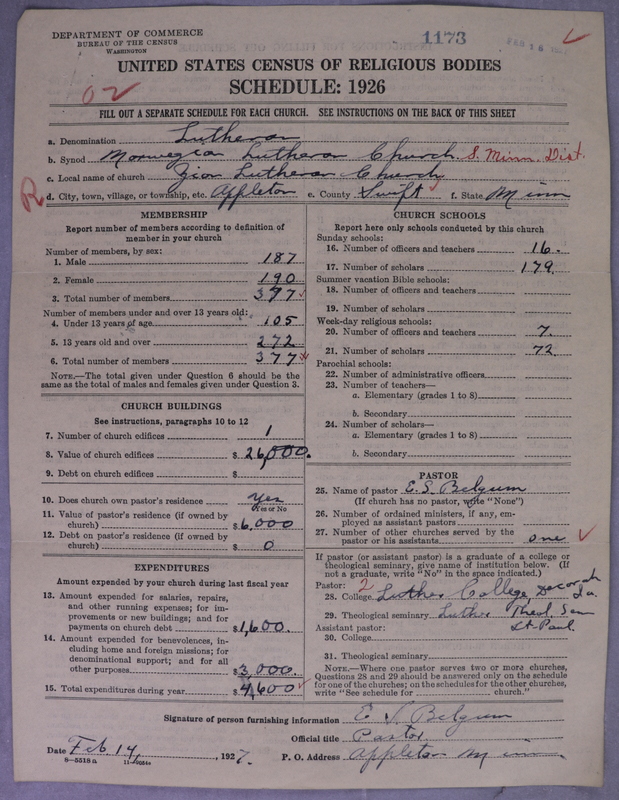 DEPARTMENT OF COMMERCE
BUREAU OF THE CENSUS
WASHINGTON
1173
UNITED STATES CENSUS OF RELIGIOUS BODIES
SCHEDULE: 1926
02
FILL OUT A SEPARATE SCHEDULE FOR EACH CHURCH. SEE INSTRUCTIONS ON THE BACK OF THIS SHEET
a. Denomination Lutheran
b. Synod Norwegian Lutheran Church S. Minn. Dist.
c. Local name of church Zion Lutheran Church
R d. City, town, village, or township, etc. Appleton e. County Swift f. State Minn
MEMBERSHIP
Report number of members according to definition of
member in your church
Number of members, by sex:
1. Male 187
2. Female 190
3. Total number of members 377
Number of members under and over 13 years old:
4. Under 13 years of age 105
5. 13 years old and over 272
6. Total number of members 377
NOTE.—The total given under Question 6 should be the
same as the total of males and females given under Question 3.
CHURCH BUILDINGS
See instructions, paragraphs 10 to 12
7. Number of church edifices 1
8. Value of church edifices $ 26,000.
9. Debt on church edifices $
10. Does church own pastor's residence Yes
Yes or No
11. Value of pastor's residence (if owned by
church) $ 6,000
12. Debt on pastor's residence (if owned by
church) $ 0
EXPENDITURES
Amount expended by your church during last fiscal year
13. Amount expended for salaries, repairs,
and other running expenses; for im-
provements or new buildings; and for
payments on church debt $1,600.
14. Amount expended for benevolences, in-
cluding home and foreign missions; for
denominational support; and for all
other purposes $3,000.
15. Total expenditures during year $4,600
CHURCH SCHOOLS
Report here only schools conducted by this church
Sunday schools:
16. Number of officers and teachers 16.
17. Number of scholars 179.
Summer vacation Bible schools:
18. Number of officers and teachers
19. Number of scholars
Week-day religious schools:
20. Number of officers and teachers 7.
21. Number of scholars 72
Parochial schools:
22. Number of administrative officers
23. Number of teachers—
a. Elementary (grades 1 to 8)
b. Secondary
24. Number of scholars—
a. Elementary (grades 1 to 8)
b. Secondary
PASTOR
25. Name of pastor E. S. Belgum
(If church has no pastor, write "None")
26. Number of ordained ministers, if any, em-
ployed as assistant pastors
27. Number of other churches served by the
pastor or his assistants one
If pastor (or assistant pastor) is a graduate of a college or
theological seminary, give name of institution below. (If
not a graduate, write "No" in the space indicated.)
Pastor: 2
28. College Luther College, Decorah Ia.
29. Theological seminary Luther Theol. Sem
Assistant pastor: St. Paul.
30. College
31. Theological seminary
NOTE.—Where one pastor serves two or more churches,
Questions 28 and 29 should be answered only on the schedule
for one of the churches; on the schedules for the other churches,
write "See schedule for church."
Signature of person furnishing information E S Belgum
Official title Pastor
Date Feb. 14, 1927. P. O. Address Appleton Minn
8—5518 a